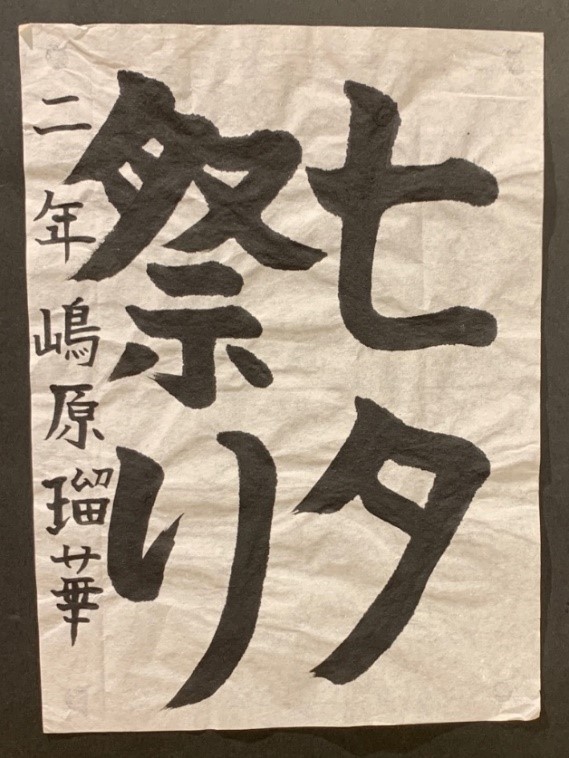 七夕
祭り
二年嶋原瑠華